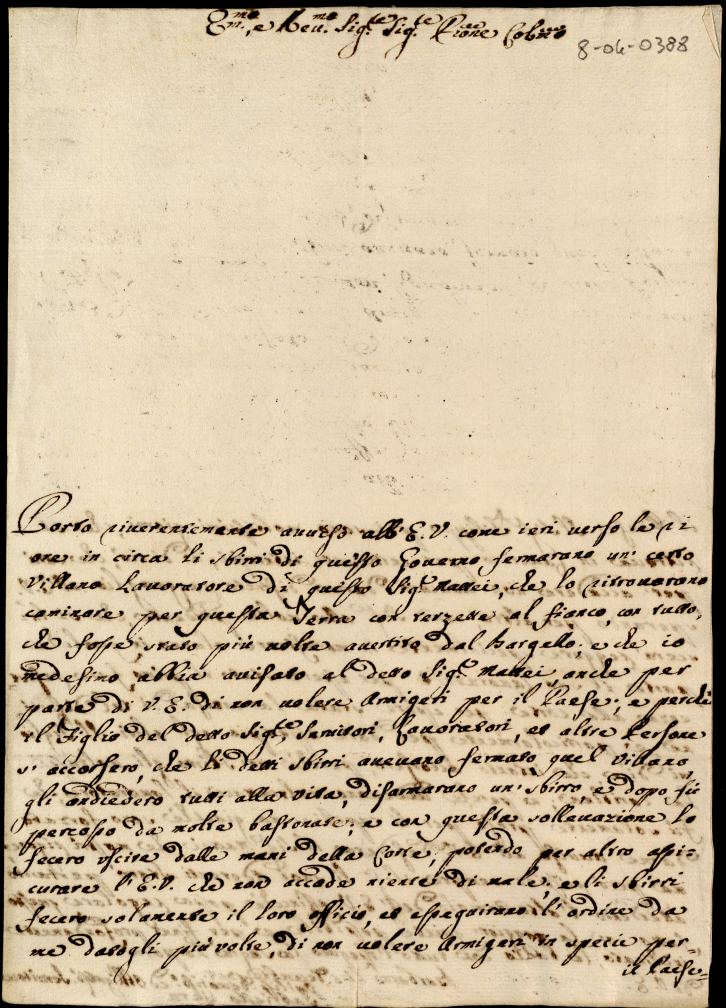 Em.mo, e Reu.mo Sig.re Sig.re P.rone Col.mo
8-04-0388
Porto riuerentemente auuiso all'E.V. come ieri uerso le 21
ore in circa li sbirri di questo Gouerno fermarono un' certo
Villano Lauoratore di questo Sig.r Mattei, che lo ritrouarono
caminare per questa Terra con terzette al fianco, con tutto,
che fosse stato più uolte auertito dal bargello; e che io
medesimo abbia auisato al detto Sig.r Mattei, anche per
parte di V.E. di non uolere Armigeri per il Paese; e perche
il Figlio del detto Sig.re, Seruitori, Lauoratori, et altre Persone
s' accorsero, che li detti sbirri aueuano fermato quel Villano,
gli andiedero tutti alla uita, disarmarono un' sbirro, e dopo fù
percosso da molte bastonate; e con questa solleuazione lo
fecero uscire dalle mani della Corte; potendo per altro assi:
curare l'E.V. che non accade niente di male; e li sbirri
fecero solamente il loro officio, et esseguirono li ordine da
me datogli più uolte, di non uolere Armigeri in specie per-
il Paese-